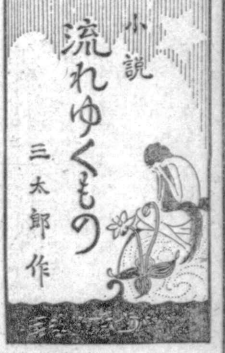 小説
流れゆくもの
三太郎作